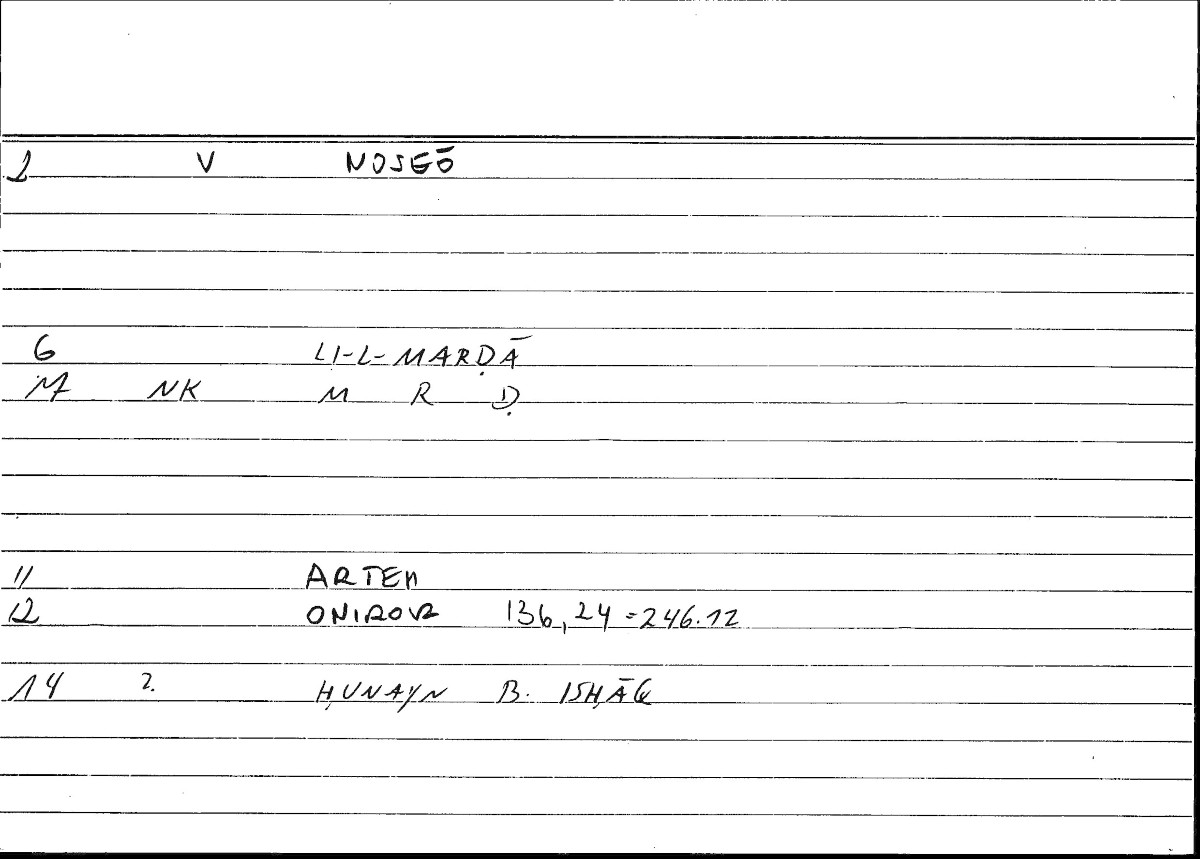 2 V NOSEŌ
6 LI-L-MARḌĀ
M NK M R Ḍ
11 ARTEM
12 ONIROKR 136,24 = 246.12
14 2. ḤUNAYN B. ISḤĀQ